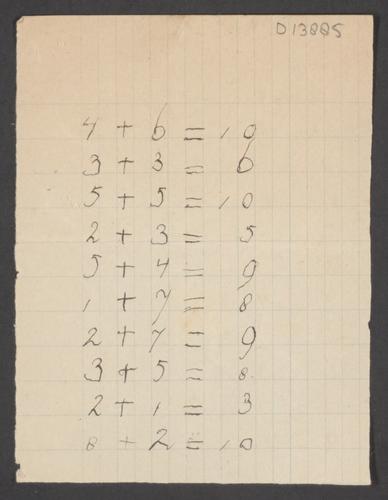 D13885
4 + 6 = 10
3 + 3 = 6
5 + 5 = 10
2 + 3 = 5
5 + 4 = 9
1 + 7 = 8
2 + 7 = 9
3 + 5 = 8
2 + 1 = 3
8 + 2 = 10